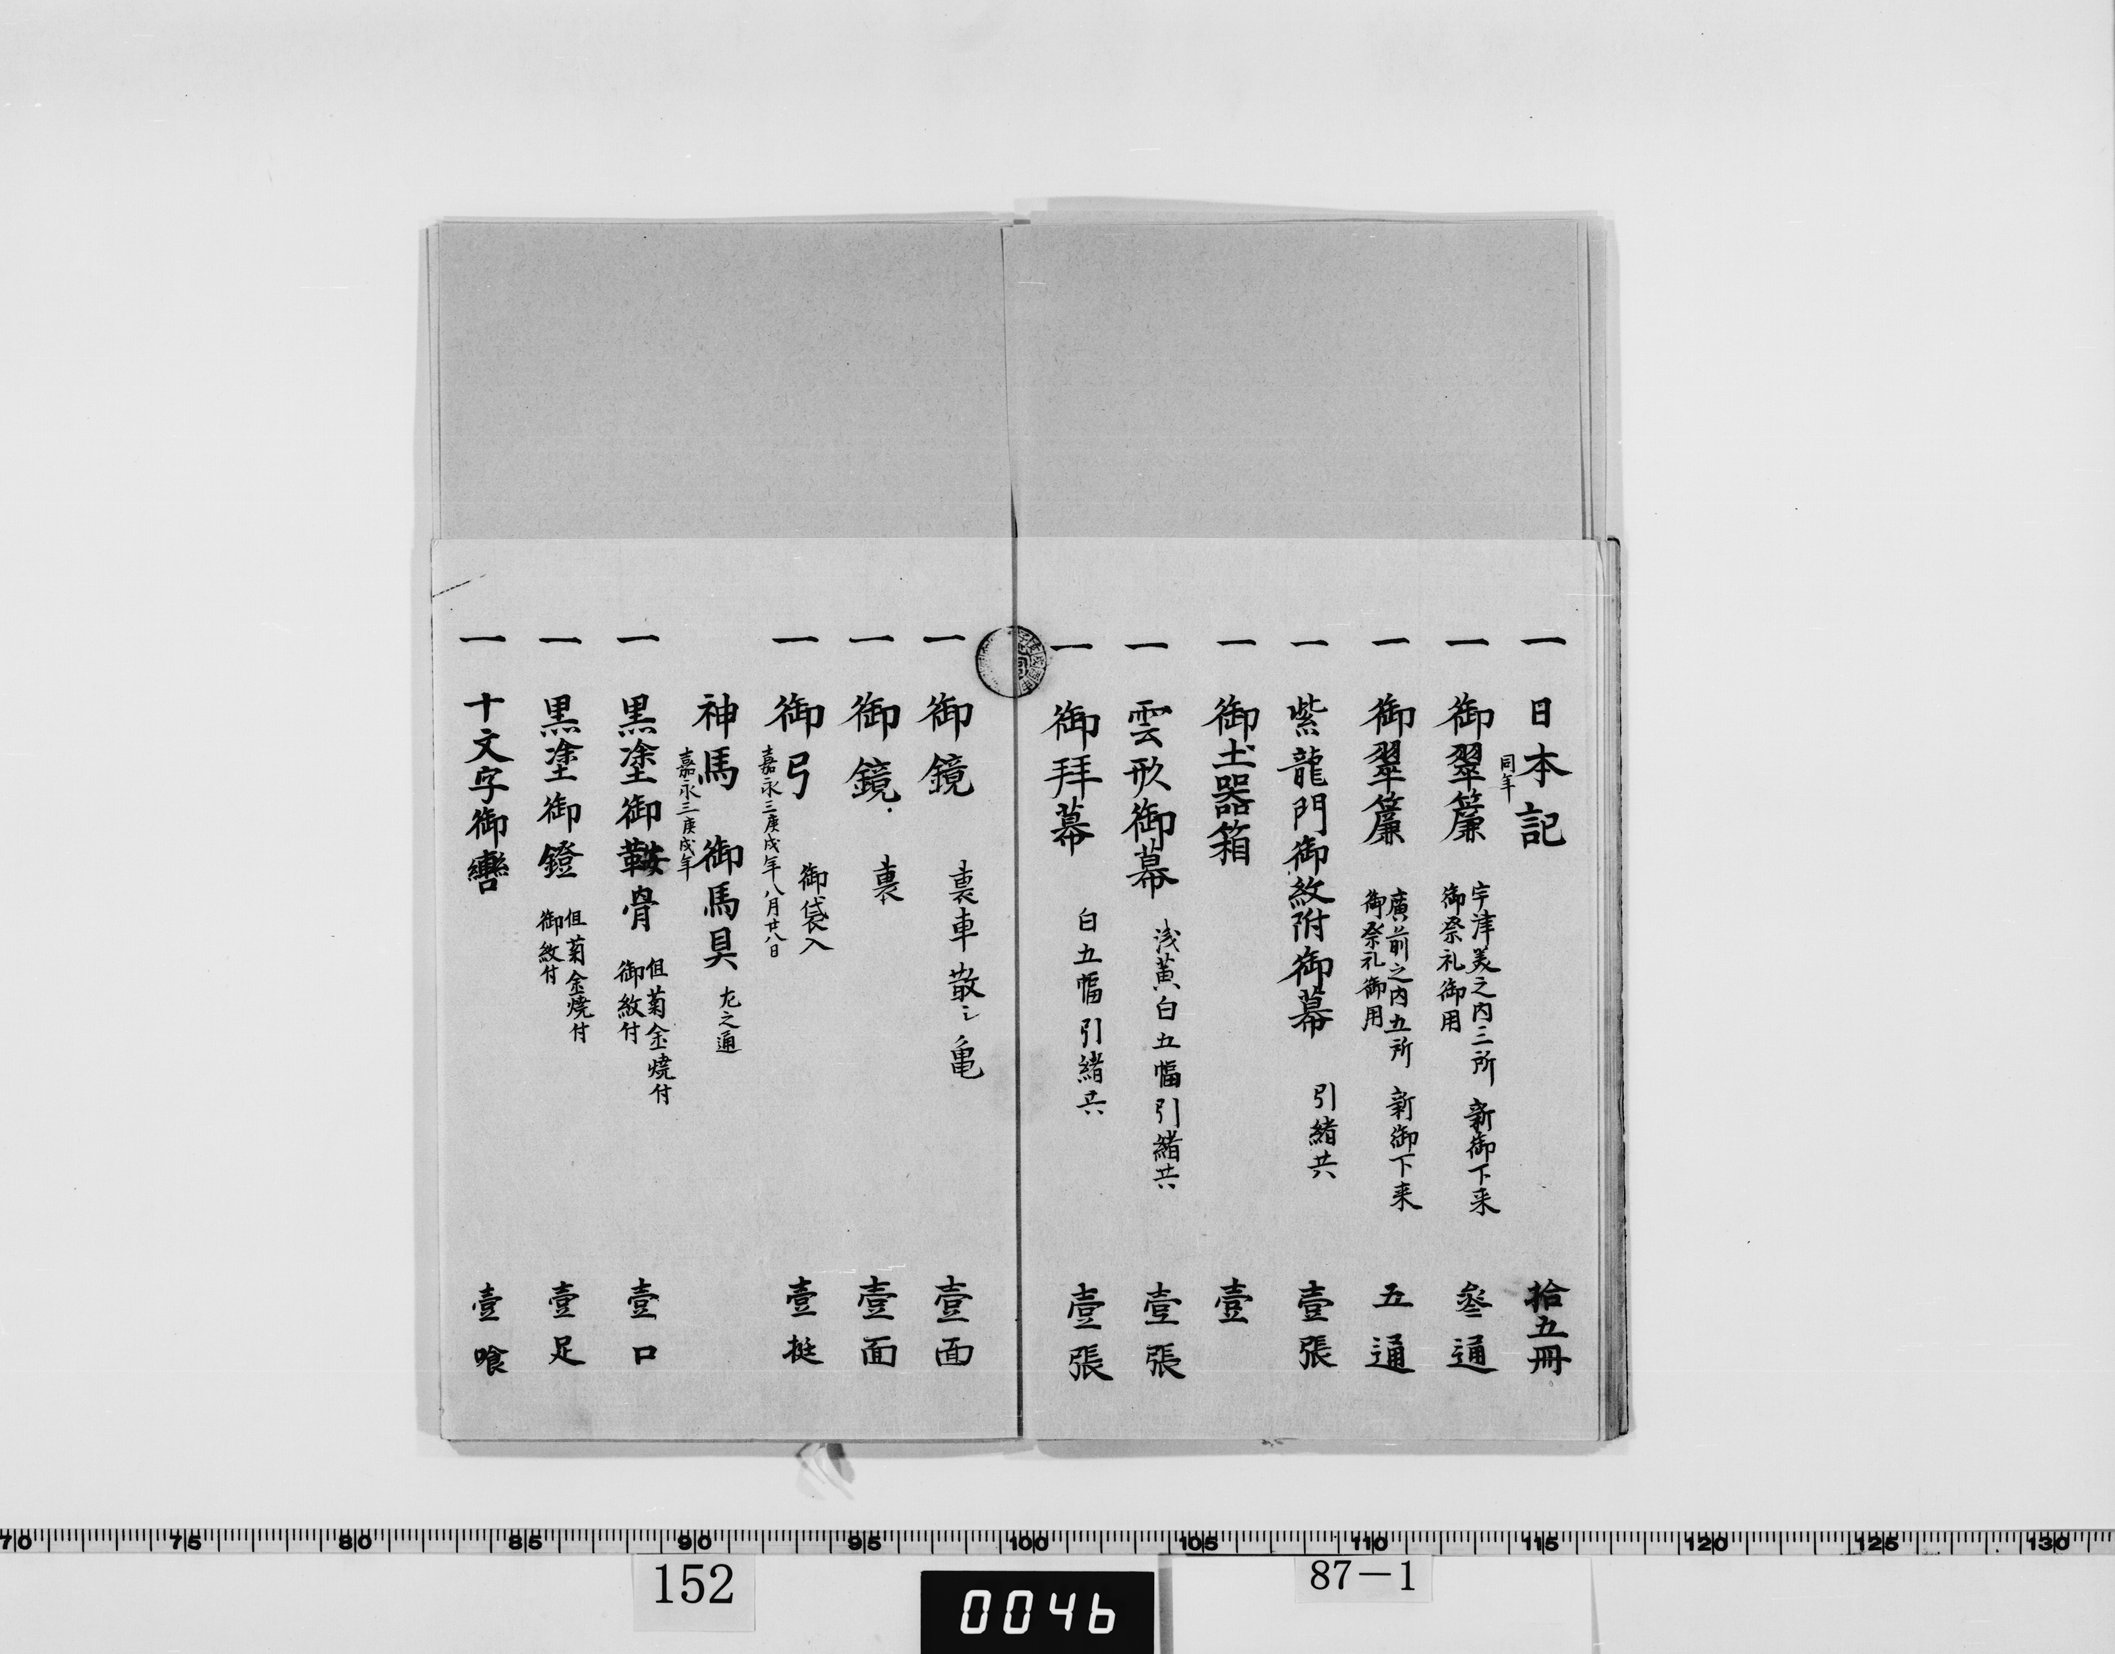 一 日本記 拾五冊
同年
一 御翠簾 宇津美之内三所 新御下来 参通
御祭礼御用
一 御翠簾 廣前之内五所 新御下来 五通
御祭礼御用
一 紫龍門御紋附御幕 引緒共 壹張
一 御土器箱 壹
一 雲形御幕 浅黄白五幅引緒共 壹張
一 御拜幕 白五幅引緒共 壹張
一 御鏡 裏車散シ亀 壹面
一 御鏡 裏 壹面
一 御弓 御袋入 壹挺
嘉永三庚戌年八月廿八日
神馬 御馬具 左之通
嘉永三庚戌年
一 黒塗御鞍骨 但菊金焼付 壹口
御紋付
一 黒塗御鐙 但菊金焼付 壹足
御紋付
一 十文字御轡 壹喰
70 75 80 85 90 95 100 105 110 115 120 125 130
152
0046
87-1